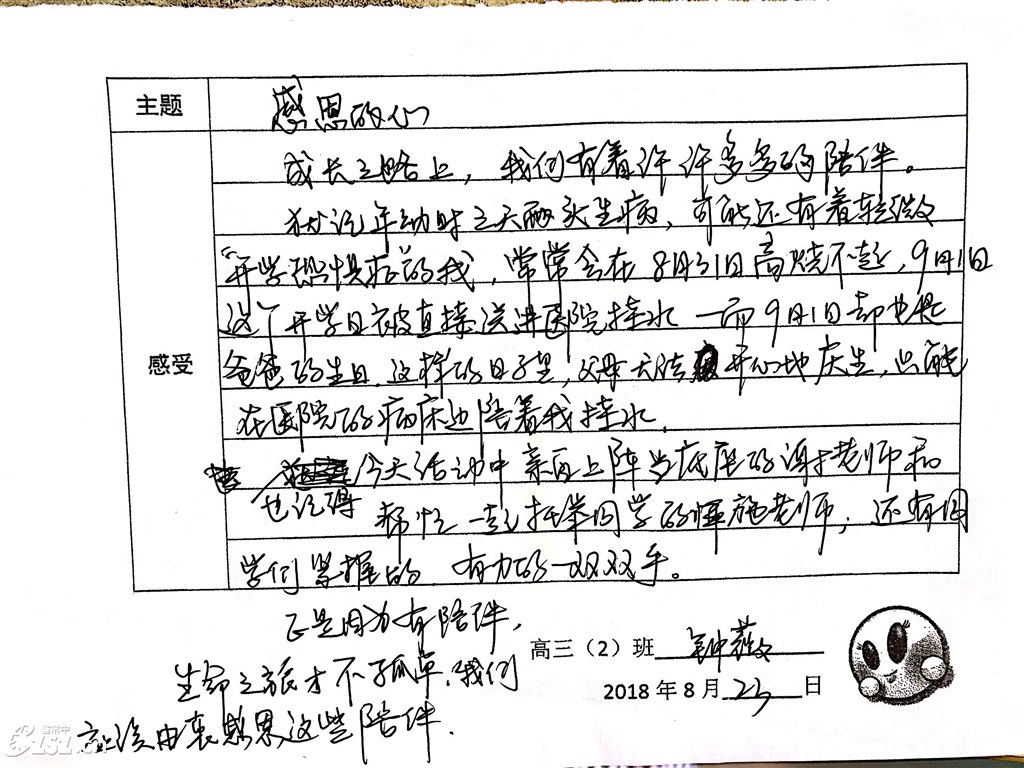 主题
感恩的心
成长之路上，我们有着许许多多的陪伴。
犹记年幼时三天两头生病，可能还有着轻微
"开学恐惧症"的我，常常会在8月31日高烧不起，9月1日
这个开学日被直接送进医院挂水 而9月1日却也是
爸爸的生日，这样的日子里，父母无法开心地庆生，只能
在医院的病床边陪着我挂水。
感受
也记得
今天活动中亲自上阵当底座的谢老师和
帮忙一起托举同学的恽施老师，还有同
学们紧握的 有力的一双双手。
正是因为有陪伴，
生命之旅才不孤单，我们
应该由衷感恩这些陪伴.
高三（2）班 钟薇
2018年8月23日